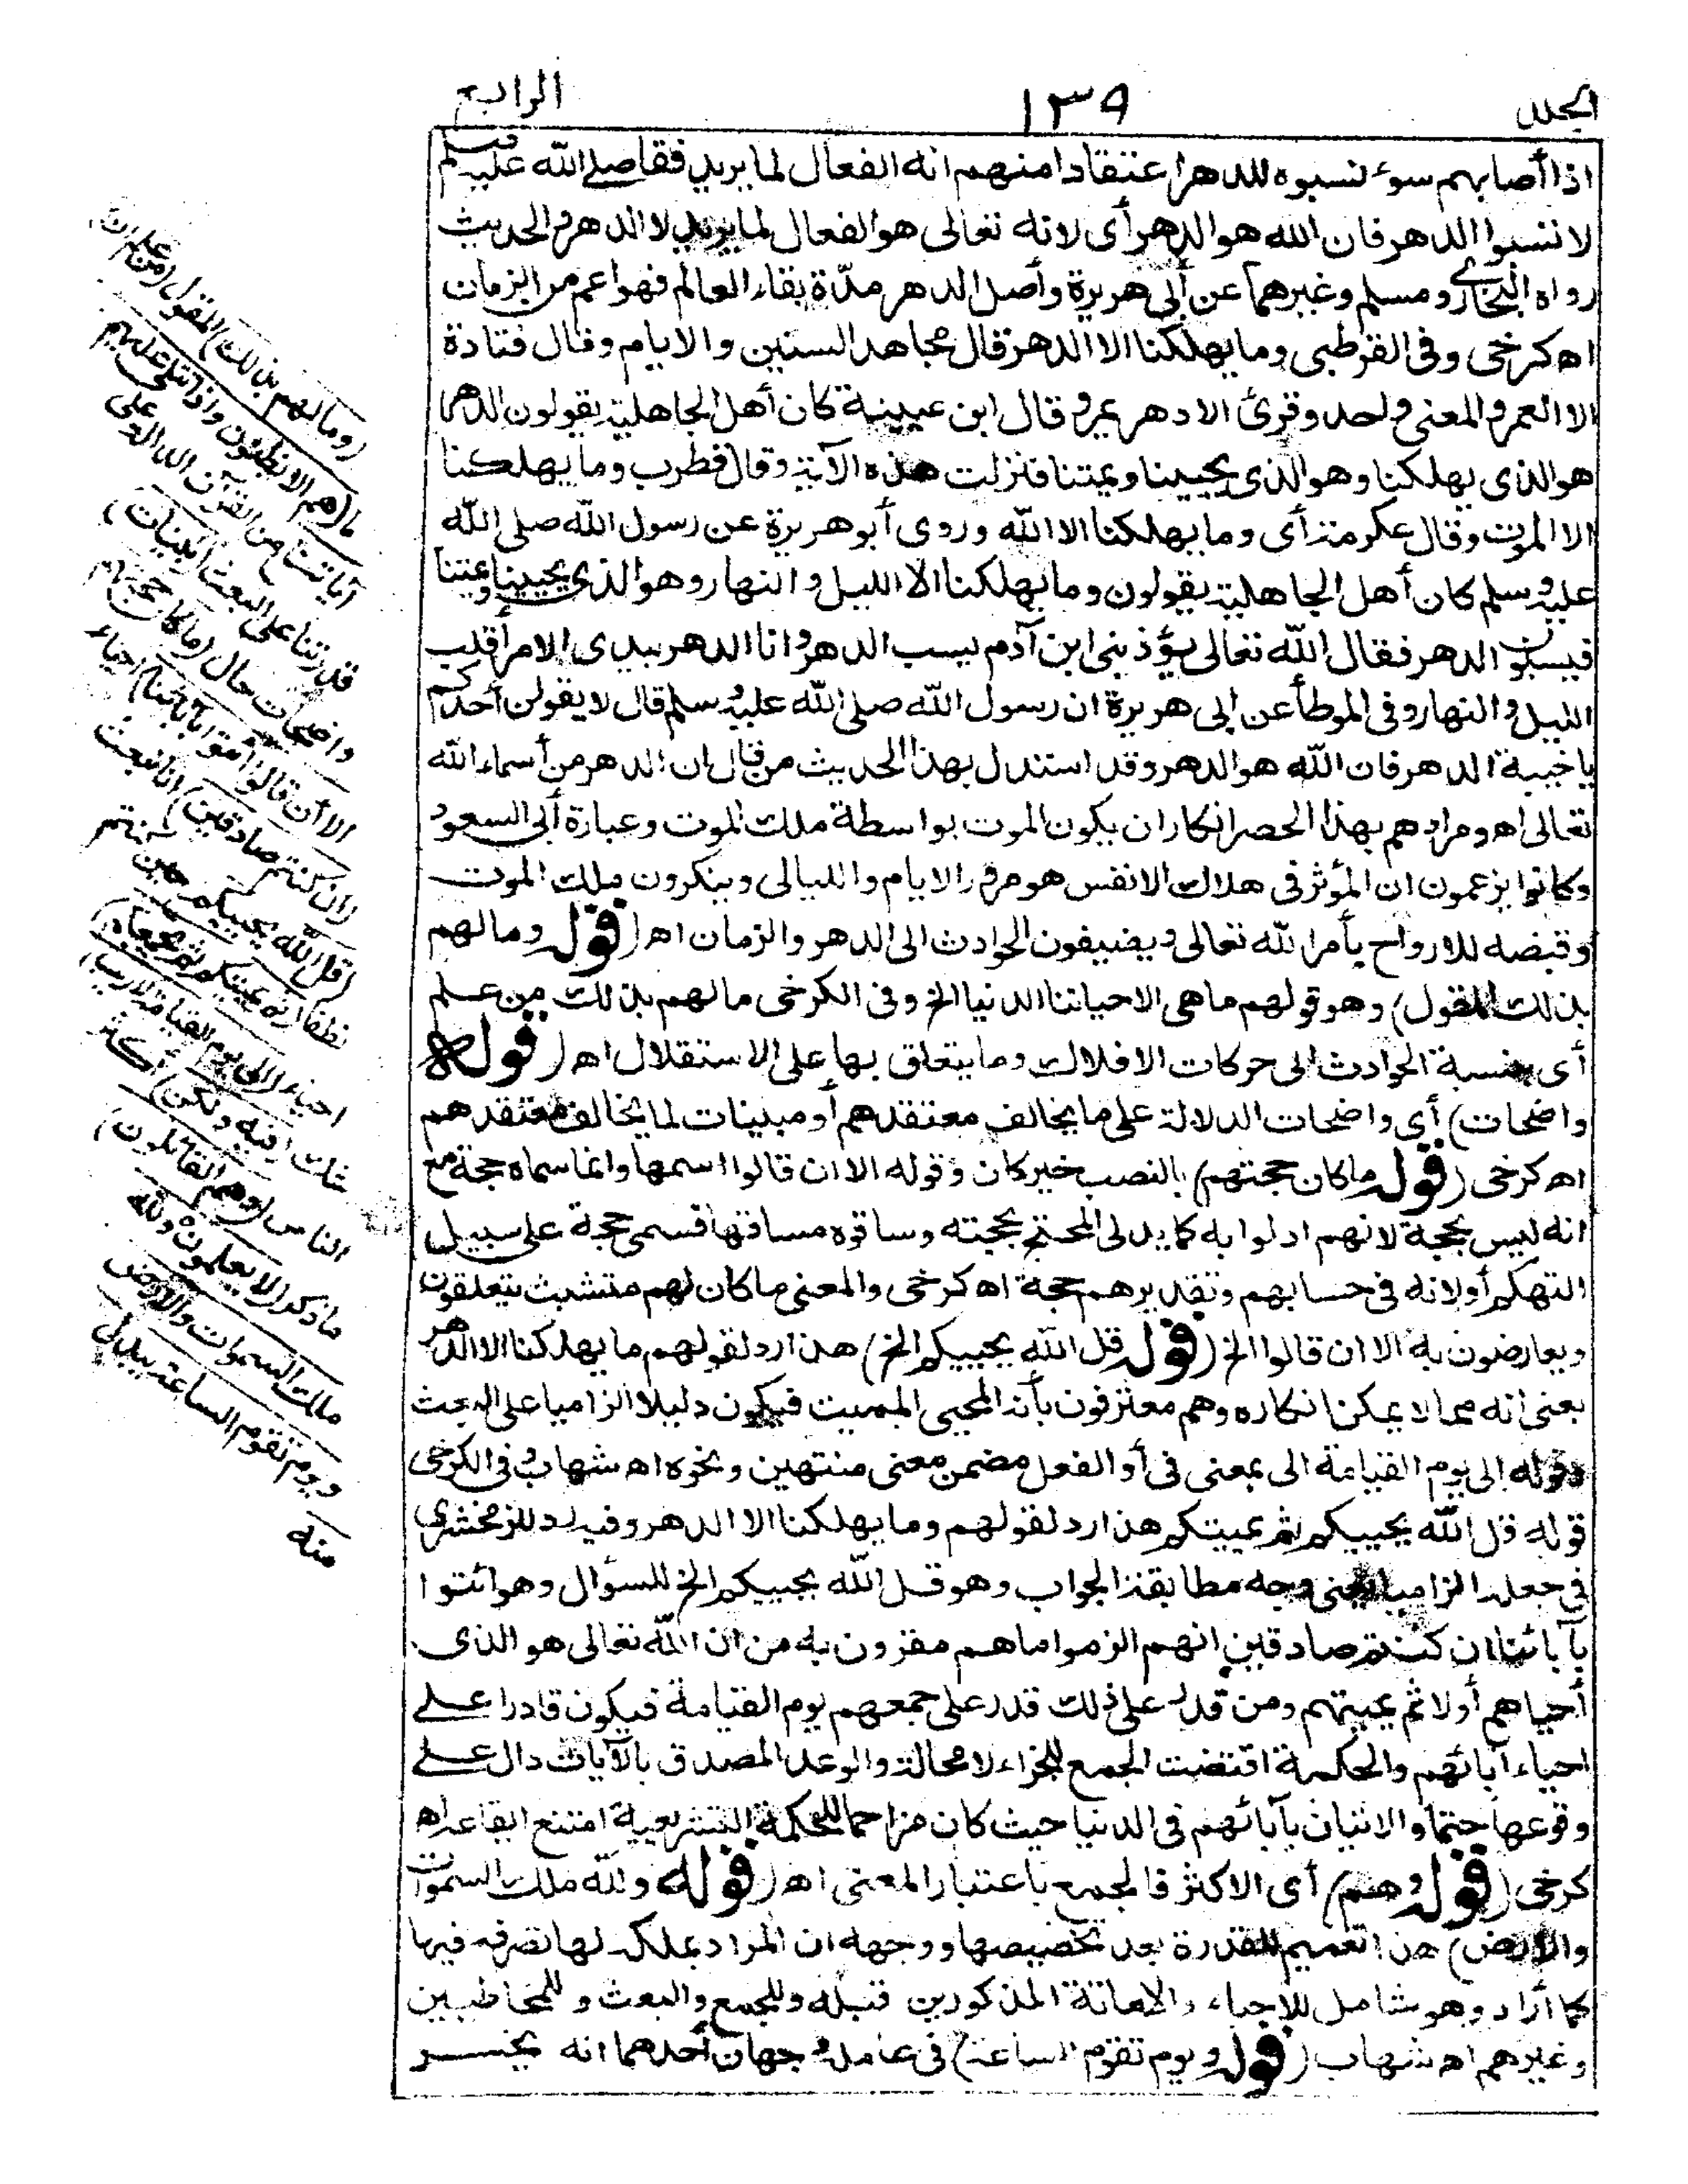 المجلد
١٣٩
الرابع
اذا أصابهم سوء نسبوه للدهر اعتقادا منهم انه الفعال لما يريد فقا صلى الله عليه وسلم
لا تسبوا الدهر فان الله هو الدهر أى لانه تعالى هو الفعال لما يريد لا الدهر والحديث
رواه البخارى ومسلم وغيرهما عن أبى هريرة وأصل الدهر مدّة بقاء العالم فهو اعم من الزمان
اه كرخى وفى القرطبى وما يهلكنا الا الدهر قال مجاهد السنين والايام وقال قتادة
الا العمر والمعنى واحد وقرئ الا دهر يمر وقال ابن عيينة كان أهل الجاهلية يقولون الدهر
هو الذى يهلكنا وهو الذى يحيينا ويميتنا فنزلت هذه الآية وقال قطرب وما يهلكنا
الا الموت وقال عكرمة أى وما يهلكنا الا الله وروى أبو هريرة عن رسول الله صلى الله
عليه وسلم كان أهل الجاهلية يقولون وما يهلكنا الا الليل والنهار وهو الذى يحيينا ويميتنا
فيسبون الدهر فقال الله تعالى يؤذينى ابن آدم يسب الدهر وانا الدهر بيدى الامر أقلب
الليل والنهار وفى الموطأ عن ابى هريرة ان رسول الله صلى الله عليه وسلم قال لا يقولن أحدكم
يا خيبة الدهر فان الله هو الدهر وقد استدل بهذا الحديث من قال ان الدهر من أسماء الله
تعالى اه ومرادهم بهذا الحصر انكار ان يكون الموت بواسطة ملك الموت وعبارة أبى السعود
وكانوا يزعمون ان المؤثر فى هلاك الانفس هو مرور الايام والليالى وينكرون ملك الموت
وقبضه للارواح بأمر الله تعالى ويضيفون الحوادث الى الدهر والزمان اه (قوله وما لهم
بذلك المقول) وهو قولهم ما هى الا حياتنا الدنيا الخ وفى الكرخى ما لهم بذلك من علم
أى بنسبة الحوادث الى حركات الافلاك وما يتعلق بها على الاستقلال اه (قوله
واضحات) أى واضحات الدلالة على ما يخالف معتقدهم أو مبينات لما يخالف معتقدهم
اه كرخى (قوله ما كان حجتهم) بالنصب خبر كان وقوله الا ان قالوا اسمها وانما سماه حجة مع
انه ليس بحجة لانهم ادلوا به كما يدلى المحتج بحجته وساقوه مساقها فسمى حجة على سبيل
التهكم أو لانه فى حسابهم وتقديرهم حجة اه كرخى والمعنى ما كان لهم متشبث يتعلقون
ويعارضون به الا ان قالوا الخ (قوله قل الله يحييكم الخ) هذا رد لقولهم ما يهلكنا الا الدهر
يعنى انه مما لا يمكن انكاره وهم معترفون بأنه المحيى المميت فيكون دليلا الزاميا على البعث
وقوله الى يوم القيامة الى بمعنى فى أو الفعل مضمن معنى منتهين ونحوه اه شهاب وفى الكرخى
قوله قل الله يحييكم ثم يميتكم هذا رد لقولهم وما يهلكنا الا الدهر وفيه رد للزمخشرى
فى جعله الزاميا يعنى وجه مطابقة الجواب وهو قل الله يحييكم الخ للسؤال وهو ائتوا
بآبائنا ان كنتم صادقين انهم الزموا ما هم مقرون به من ان الله تعالى هو الذى
أحياهم أولا ثم يميتهم ومن قدر على ذلك قدر على جمعهم يوم القيامة فيكون قادرا على
احياء آبائهم والحكمة اقتضت الجمع للجزاء لا محالة والوعد المصدق بالآيات دال على
وقوعها حتما والاتيان بآبائهم فى الدنيا حيث كان مزاحما للحكمة التشريعية امتنع ايقاعه اه
كرخى (قوله وهم) أى الاكثر فالجمع باعتبار المعنى اه (قوله ولله ملك السموات
والارض) هذا تعميم للقدرة بعد تخصيصها ووجهه ان المراد بملكه لها تصرفه فيها
كما أراد وهو شامل للاحياء والاماتة المذكورين قبله وللجمع والبعث وللمخاطبين
وغيرهم اه شهاب (قوله ويوم تقوم الساعة) فى عامله وجهان أحدهما انه يخسر
(وما لهم بذلك) المقول (من علم ان)
ما (هم الا يظنون واذا تتلى عليهم
آياتنا) من القرآن الدالة على
قدرتنا على البعث (بينات)
واضحات حال (ما كان حجتهم
الا أن قالوا ائتوا بآبائنا) احياء
(ان كنتم صادقين) انا نبعث
(قل الله يحييكم) حين كنتم
نطفا (ثم يميتكم ثم يجمعكم)
احياء (الى يوم القيامة لا ريب)
شك (فيه ولكن) أكثر
الناس (وهم القائلون)
ما ذكر (لا يعلمون ولله
ملك السموات والارض
ويوم تقوم الساعة) يبدل
منه